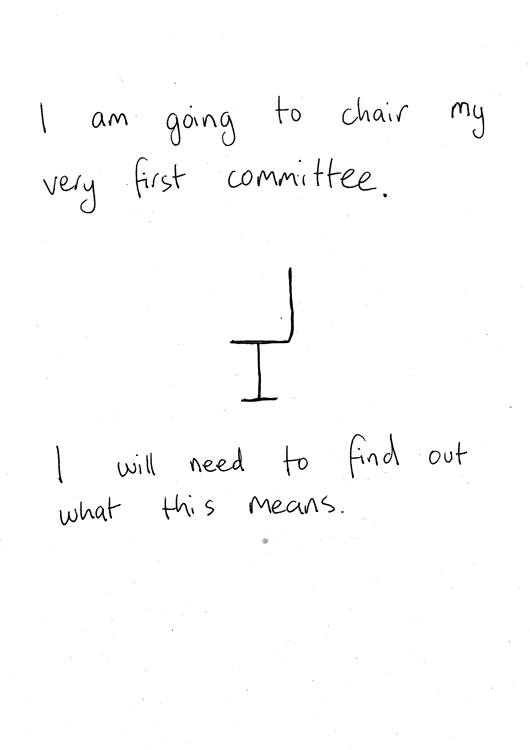 I am going to chair my
very first committee.
I will need to find out
what this means.